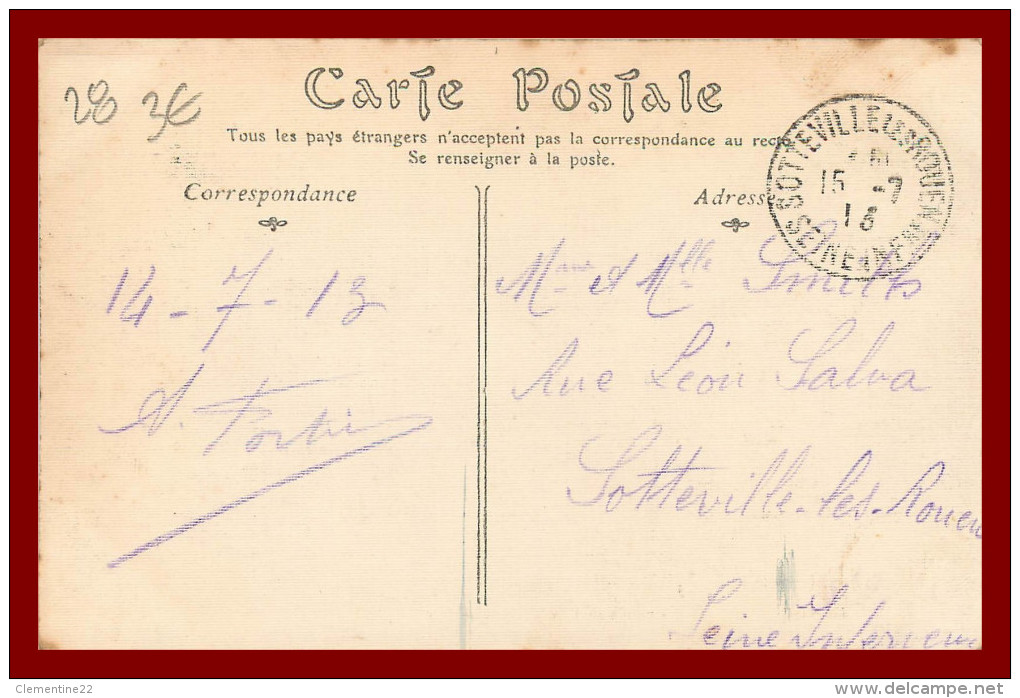 28 3€
Carte Postale
Tous les pays étrangers n'acceptent pas la correspondance au recto
Se renseigner à la poste.
Correspondance
Adresse
SOTTEVILLE LES ROUEN
15 -7
13
SEINE INFRE
14 - 7 - 13
Mme et Mlle Smitts
Rue Léon Salva
Sotteville-les-Rouen
Seine Inférieure
Clementine22
www.delcampe.net